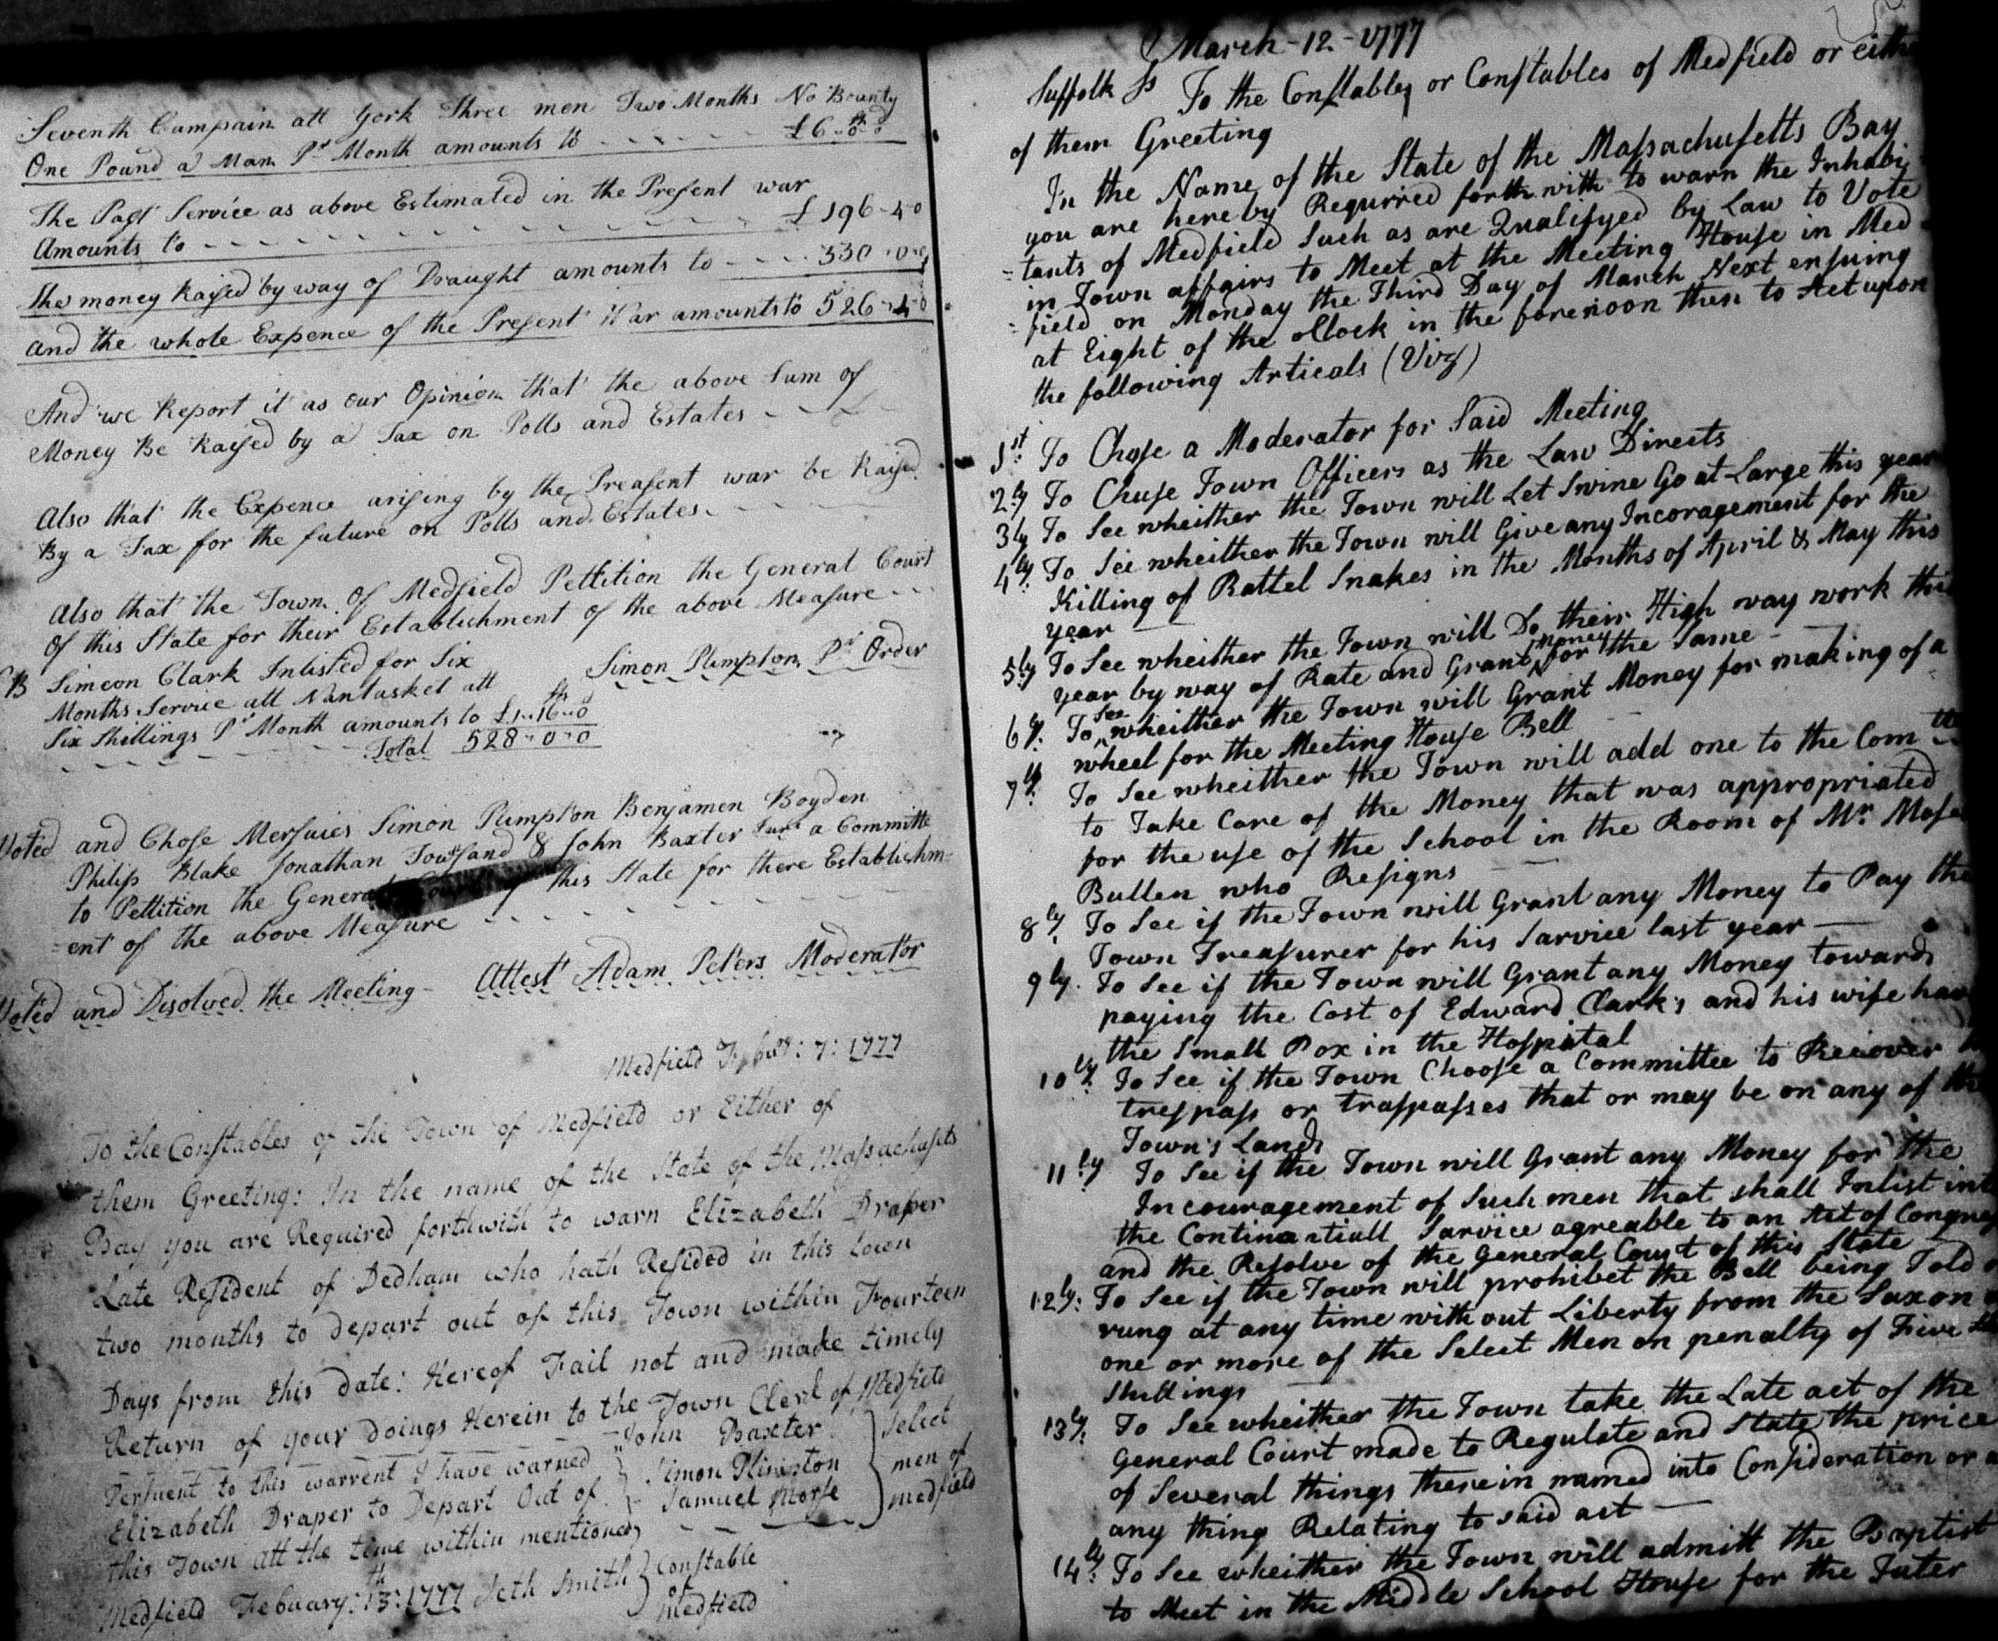 Seventh Campain att York Three men Two Months No Bounty
One Pound a Man Pr Month amounts to - - - - - £6-0-0
The Past Service as above Estimated in the Present war
Amounts to - - - - - - - - - £196-4-0
The money Raised by way of Draught amounts to - - - 330-0-0
and the whole Expence of the Present War amounts to 526-4-0
And we Report it as our Opinion that the above Sum of
Money Be Raised by a Tax on Polls and Estates - - -
Also that the Expence arising by the Preasent war be Raised
By a Tax for the future on Polls and Estates - - -
Also that the Town of Medfield Pettition the General Court
Of this State for their Establichment of the above Measure - -
B Simeon Clark Inlisted for Six
Months Service att Nantasket att
Six Shillings Pr Month amounts to £1-16-0
Total 528-0-0
Simon Plimpton Pr Order
Voted and Chose Mersuies Simon Plimpton Benjamen Boyden
Philip Blake Jonathan Townsand & John Baxter Junr a Committe
to Pettition the General this State for there Establichm=
=ent of the above Measure - - - - - -
Voted and Disolved the Meeting - Attest Adam Peters Moderator
Medfield Febury: 7: 1777
To the Constables of the Town of Medfield or Either of
them Greeting: In the name of the State of the Massachusets
Bay you are Required forthwith to warn Elizabeth Draper
Late Resident of Dedham who hath Resided in this town
two months to depart out of this Town within Fourteen
Days from this date: Hereof Fail not and make timely
Return of your doings Herein to the Town Clerk of Medfield
Persuent to this warrent I have warned
Elizabeth Draper to Depart Out of
this Town att the time within mentioned
Medfield Febuary: 13th: 1777 Seth Smith Constable of Medfield
John Baxter
Simon Plimpton
Samuel Morse
Select
men of
Medfield
March-12-1777
Suffolk Ss To the Constable or Constables of Medfield or either
of them Greeting
In the Name of the State of the Massachusetts Bay
you are hereby Requrired forthwith to warn the Inhabi
=tants of Medfield Such as are Qualifyed by Law to Vote
in Town affairs to Meet at the Meeting House in Med
=field on Monday the Third Day of March Next ensuing
at Eight of the oClock in the forenoon then to Act upon
the following Articals (Viz)
1st To Chose a Moderator for Said Meeting
2ly To Chuse Town Officers as the Law Directs
3ly To See wheither the Town will Let Swine Go at Large this year
4ly To See wheither the Town will Give any Incoragement for the
Killing of Rattel Snakes in the Months of April & May this
year
5ly To See wheither the Town will Do their High way work this
year by way of Rate and Grant money for the Same -
6ly To See wheither the Town will Grant Money for making of a
wheel for the Meeting House Bell
7ly To See wheither the Town will add one to the Comtte
to Take Care of the Money that was appropriated
for the use of the School in the Room of Mr Moses
Bullen who Resigns
8ly To See if the Town will Grant any Money to Pay the
Town Treasurer for his Sarvice last year
9ly To See if the Town will Grant any Money towards
paying the Cost of Edward Clark's and his wife have
the Small Pox in the Hospital
10ly To See if the Town Choose a Committee to Recover
trespass or traspasses that or may be on any of the
Town's Lands
11ly To See if the Town will Grant any Money for the
Incouragement of Such men that shall Inlist into
the Continantiall Sarvice agreable to an Act of Congress
and the Resolve of the General Court of this State
12ly: To See if the Town will prohibet the Bell being Told or
rung at any time without Liberty from the Saxon or
one or more of the Select Men on penalty of Five
Shillings
13ly: To See wheither the Town take the Late act of the
General Court made to Regulate and State the price
of Several things therein named into Consideration or
any thing Relating to said act
14ly: To See wheither the Town will admitt the Baptist
to Meet in the Middle School House for the Futer